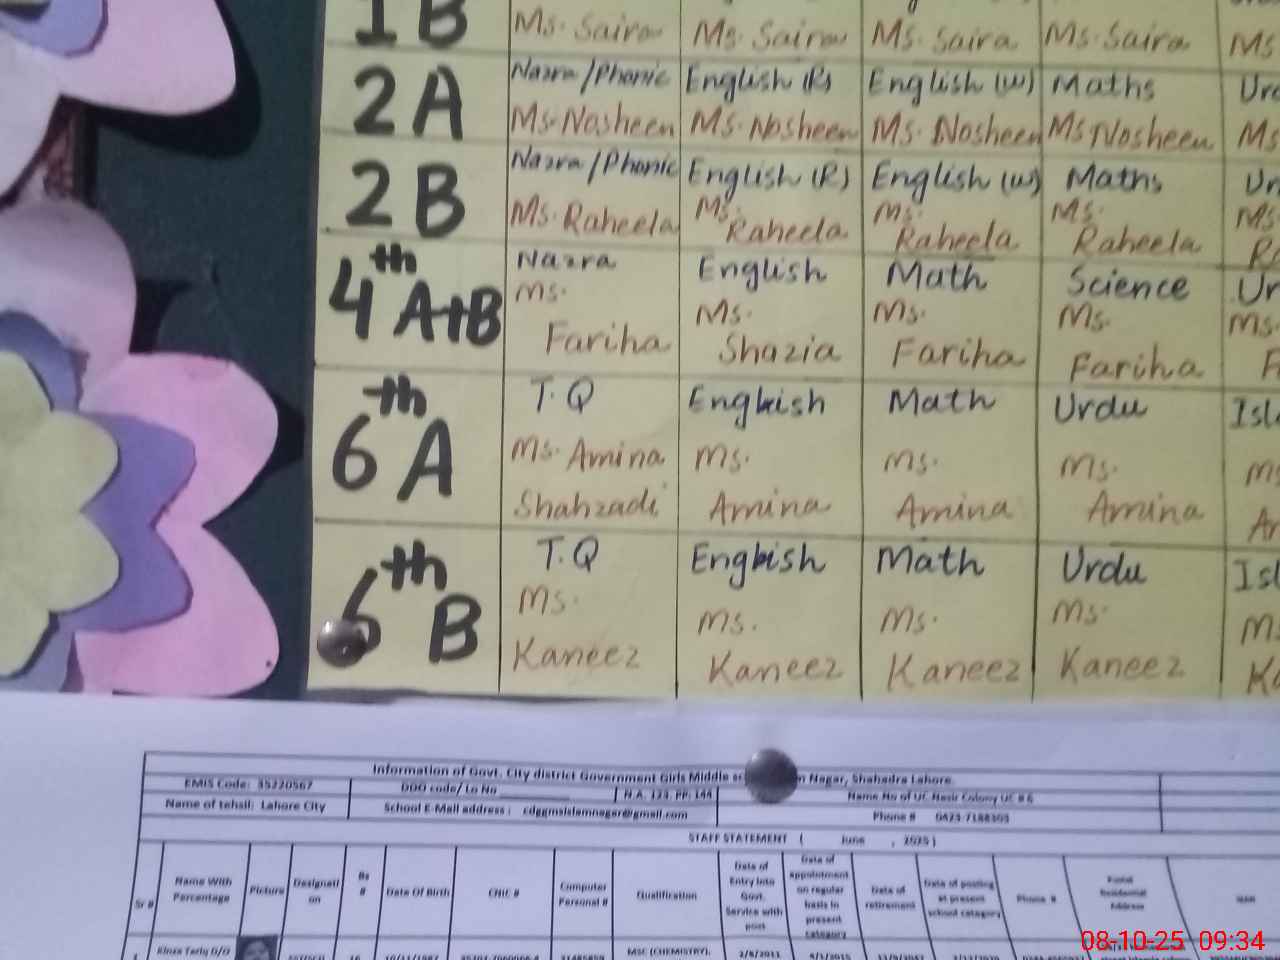 1B Ms. Saira Ms. Saira Ms. Saira Ms. Saira Ms
2A Nazra/Phonic English (R) English (W) Maths
Ms. Nosheen Ms. Nosheen Ms. Nosheen Ms Nosheen Ms
2B Nazra/Phonic English (R) English (W) Maths
Ms. Raheela Ms. Raheela Ms. Raheela Ms. Raheela Ms
4th A+B Nazra English Math Science
Ms. Fariha Ms. Shazia Ms. Fariha Ms. Fariha Ms.
6th A T.Q English Math Urdu
Ms. Amina Shahzadi Ms. Amina Ms. Amina Ms. Amina
6th B T.Q English Math Urdu
Ms. Kaneez Ms. Kaneez Ms. Kaneez Ms. Kaneez
Information of Govt. City district Government Girls Middle Nagar, Shahadra Lahore.
EMIS Code: 35220567 DDO code/ Lo No N.A. 123, PP: 144 Name No of UC Nasir Colony UC # 6
Name of tehsil: Lahore City School E-Mail address : cdggmsislamnagar@gmail.com Phone #
STAFF STATEMENT ( June , 2025 )
Sr # Name With Percentage Picture Designati on Bs # Date Of Birth CNIC # Computer Personal # Qualification Date of Entry Into Govt. Service with post Date of appointment on regular basis in present category Date of retirement Date of posting at present school category Phone # Postal Residential Address
Kinza Tariq D/O MSC (CHEMISTRY), 2/8/2011
08-10-25 09:34